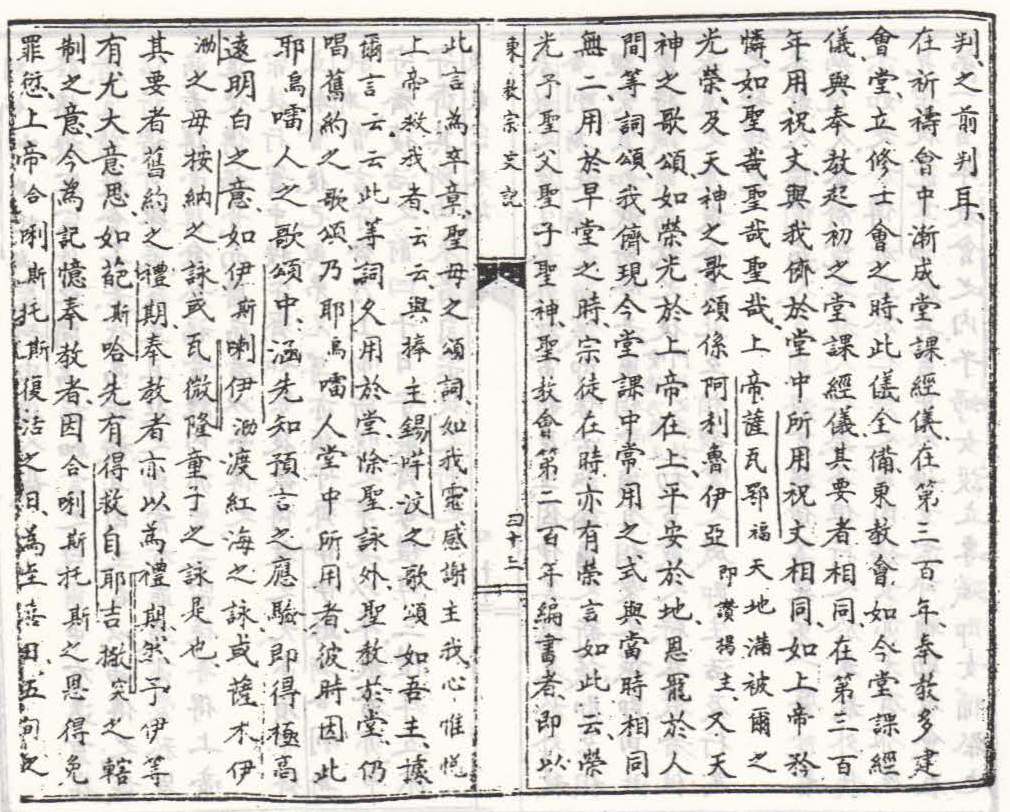 判之前判耳、
在祈禱會中漸成堂課經儀、在第三百年、奉教多建
會堂、立修士會之時、此儀全備、東教會、如今堂課經
儀、與奉教起初之堂課經儀、其要者、相同、在第三百
年用祝文、與我儕於堂中所用祝文相同、如上帝矜
憐、如聖哉聖哉聖哉、上帝薩瓦鄂福天地滿被爾之
光榮、及天神之歌頌、係阿利魯伊亞即讚揚主、又天
神之歌頌、如榮光於上帝在上、平安於地、恩寵於人
間等詞頌、我儕現今堂課中常用之式、與當時相同
無二、用於早堂之時、宗徒在時、亦有榮言如此、云、榮
光予聖父聖子聖神、聖教會第二百年編書者、即以
東教宗史記
四十二
此言為卒章、聖母之頌詞、如我靈感謝主、我心惟悅
上帝救我者、云云、與捧主錫咩汶之歌頌、如吾主、據
爾言云云、此等詞久用於堂、除聖詠外、聖教於堂、仍
唱舊約之歌頌、乃耶烏嚅人堂中所用者、彼時因此
耶烏嚅人之歌頌中、涵先知預言之應驗、即得極高
遠明白之意、如伊斯喇伊泐渡紅海之詠、或薩木伊
泐之母按納之詠、或瓦微隆童子之詠是也、
其要者舊約之禮期、奉教者亦以為禮期、然予伊等
有尤大意思、如葩斯哈先有得救自耶吉撒突之轄
制之意、今為記憶奉教者、因合唎斯托斯之恩得免
罪愆、上帝合唎斯托斯復活之日、為